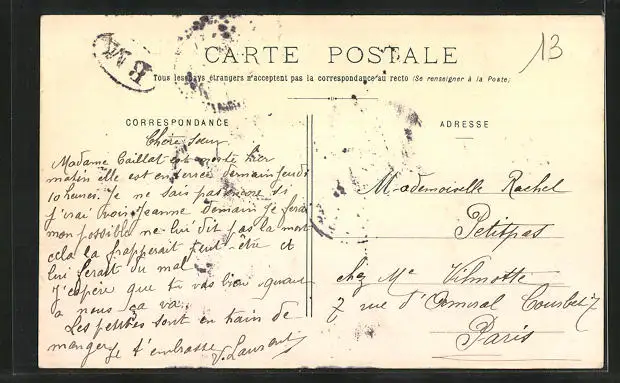 CARTE POSTALE
13
BM
Tous les pays étrangers n'acceptent pas la correspondance au recto (Se renseigner à la Poste)
CORRESPONDANCE
Chère sœur
Madame Caillat est morte hier
matin elle est enterrée demain jeudi
10 heures. Je ne sais pas encore si
j'irai voir Jeanne demain je ferai
mon possible ne lui dit pas la mort
cela la frapperait peut-être et
lui ferait du mal
J'espère que tu vas bien quant
a nous ça va
Les petites sont en train de
manger je t'embrasse J. Laurent
ADRESSE
Mademoiselle Rachel
Petitpas
chez Me Vilmotte
7 rue d'Amiral Courbet 7
Paris